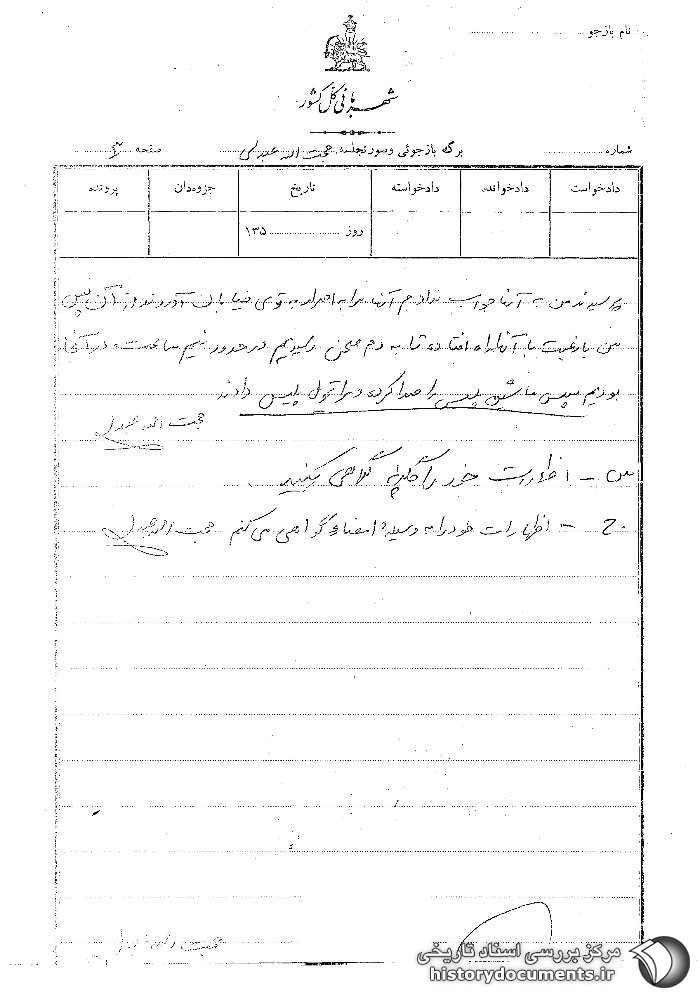 نام بازجو
شهربانی کل کشور
شماره
برگ بازجوئی و صورتجلسه حجت اله عبدلی
صفحه
دادخواست دادخوانده دادخواسته تاریخ جزوه‌دان پرونده
روز ۱۳۵
پرسیدند من به آنها جواب ندادم آنها مرا به اصرار به توی خیابان آوردند از آن پس
من با رغبت با آنها راه افتاده تا به دم صحن رسیدیم در حدود نیم ساعت در آنجا
بودیم سپس ماشین پلیس را صدا کرده و مرا تحویل پلیس دادند
حجت اله عبدلی
س - اظهارات خود را چگونه گواهی میکنید
ج - اظهارات خود را به وسیله امضاء گواهی می کنم حجت اله عبدلی
حجت اله عبدلی
مرکز بررسی اسناد تاریخی
historydocuments.ir